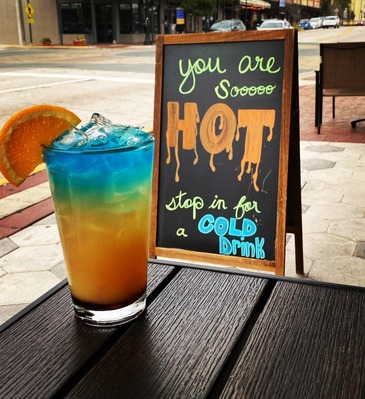 you are
Sooooo
HOT
stop in for
a COLD
Drink